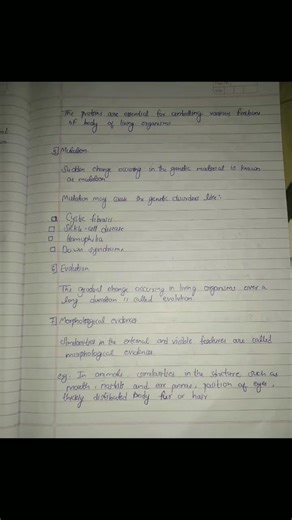 The proteins are essential for controlling various functions
of body of living organisms.
5] Mutation
Sudden change occuring in the genetic material is known
as mutation.
Mutation may cause the genetic disorders like:-
Cystic fibrosis
Sickle-cell disease
Hemophilia
Down syndrome.
6] Evolution
The gradual change occuring in living organisms over a
long duration is called "evolution"
7] Morphological evidence
Similarities in the external and visible features are called
morphological evidence
eg: In animals, similarities in the structure such as
mouth, nostrils and ear pinnae, position of eyes,
thickly distributed body fur or hair